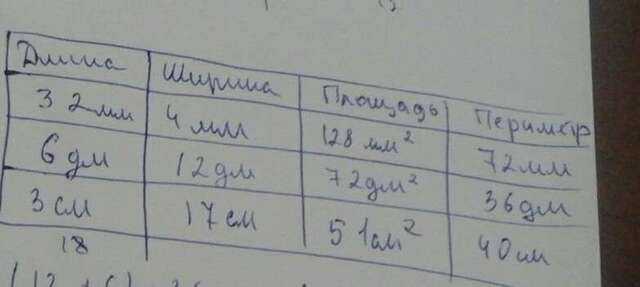 Длина Ширина Площадь Периметр
32мм 4мм 128мм² 72мм
6дм 12дм 72дм² 36дм
3см 17см 51см² 40см
18